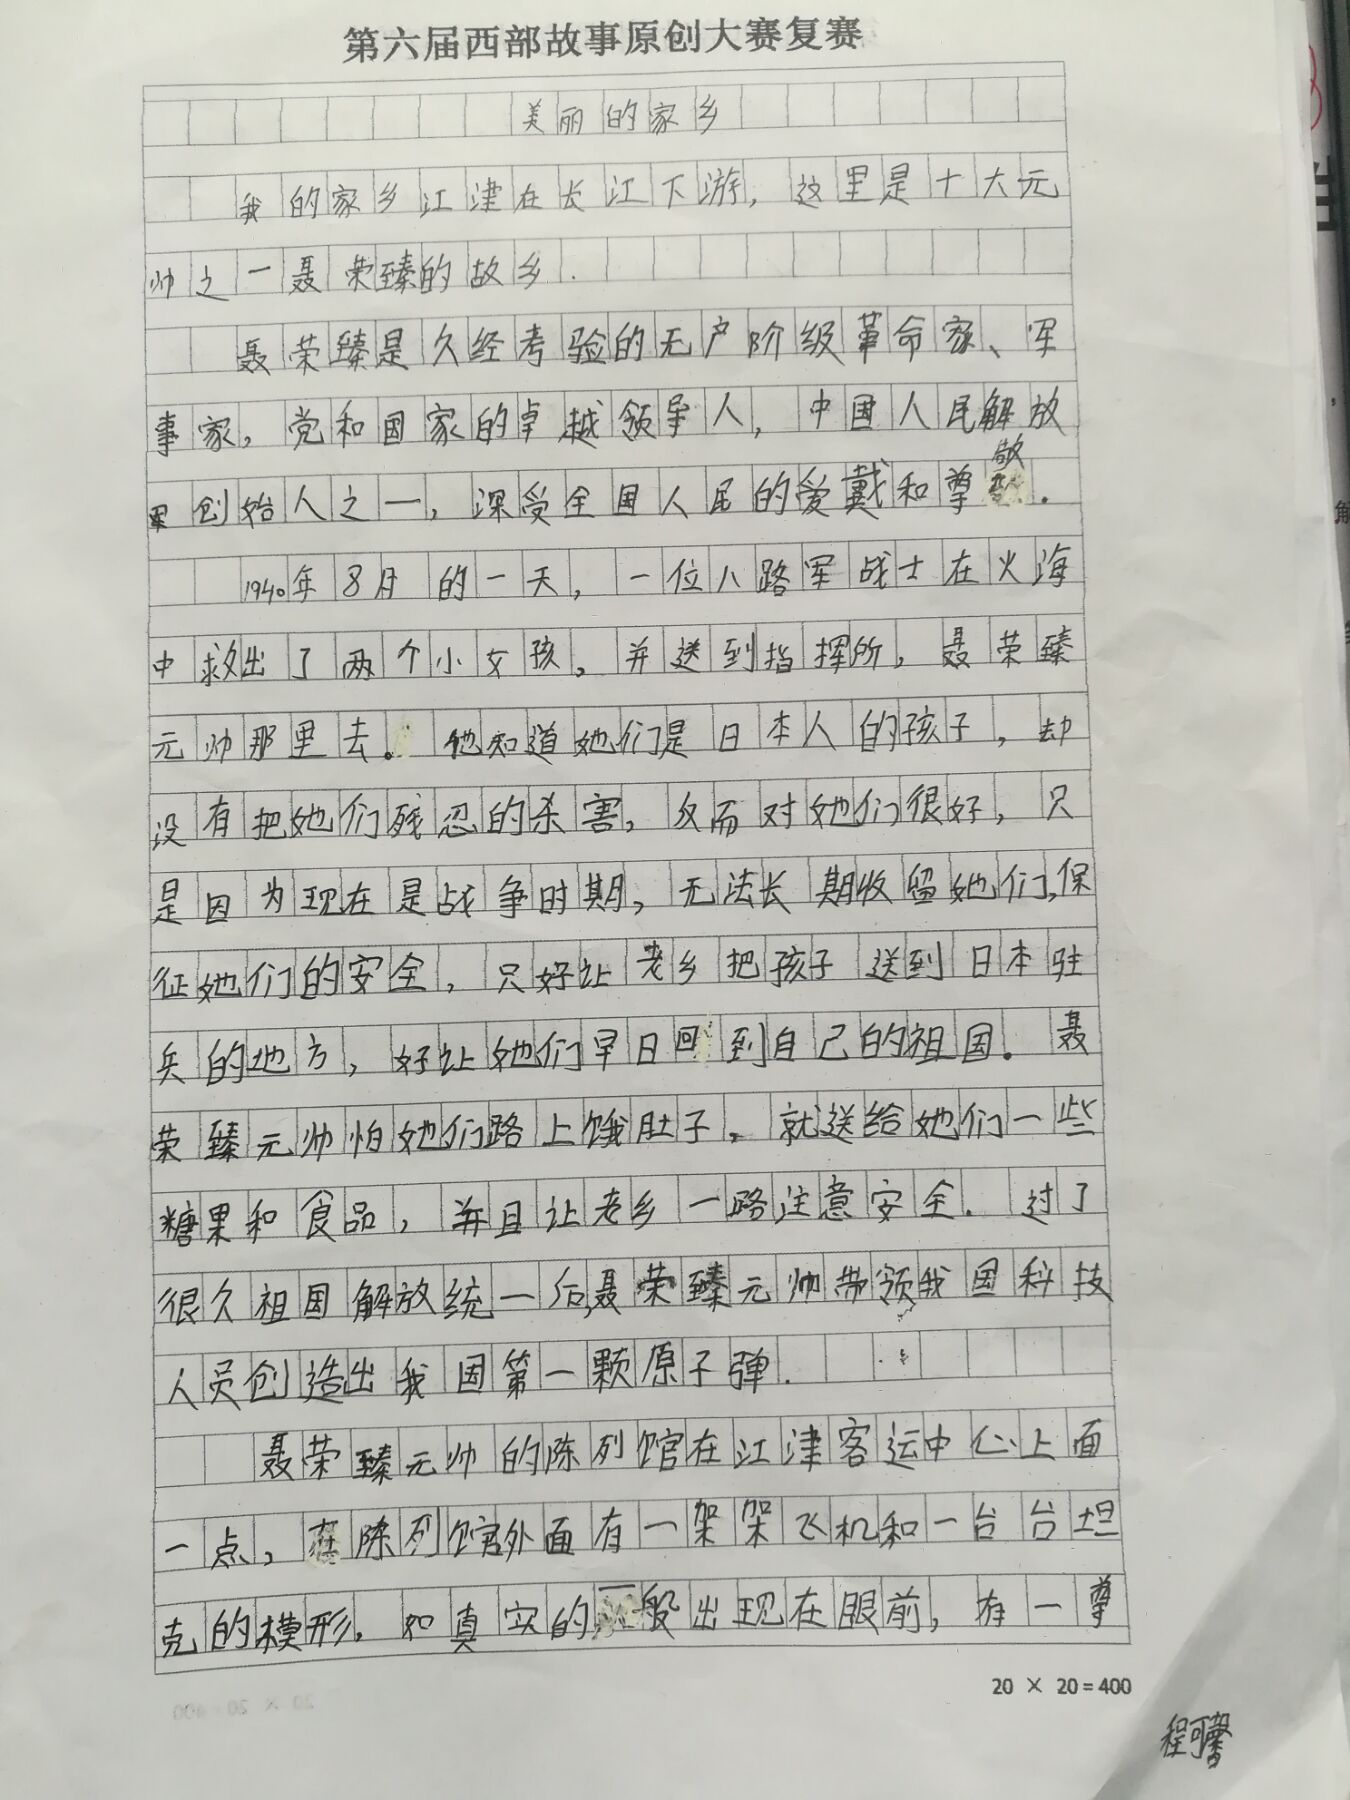 第六届西部故事原创大赛复赛
美丽的家乡
我的家乡江津在长江下游，这里是十大元
帅之一聂荣臻的故乡.
聂荣臻是久经考验的无产阶级革命家、军
事家，党和国家的卓越领导人，中国人民解放
军创始人之一，深受全国人民的爱戴和尊敬.
1940年8月的一天，一位八路军战士在火海
中救出了两个小女孩，并送到指挥所，聂荣臻
元帅那里去。他知道她们是日本人的孩子，却
没有把她们残忍的杀害，反而对她们很好，只
是因为现在是战争时期，无法长期收留她们，保
征她们的安全，只好让老乡把孩子送到日本驻
兵的地方，好让她们早日回到自己的祖国.聂
荣臻元帅怕她们路上饿肚子，就送给她们一些
糖果和食品，并且让老乡一路注意安全.过了
很久祖国解放统一后，聂荣臻元帅带领我国科技
人员创造出我国第一颗原子弹.
聂荣臻元帅的陈列馆在江津客运中心上面
一点，在陈列馆外面有一架架飞机和一台台坦
克的模形，如真实的一般出现在眼前，有一尊
20 × 20=400
程可馨